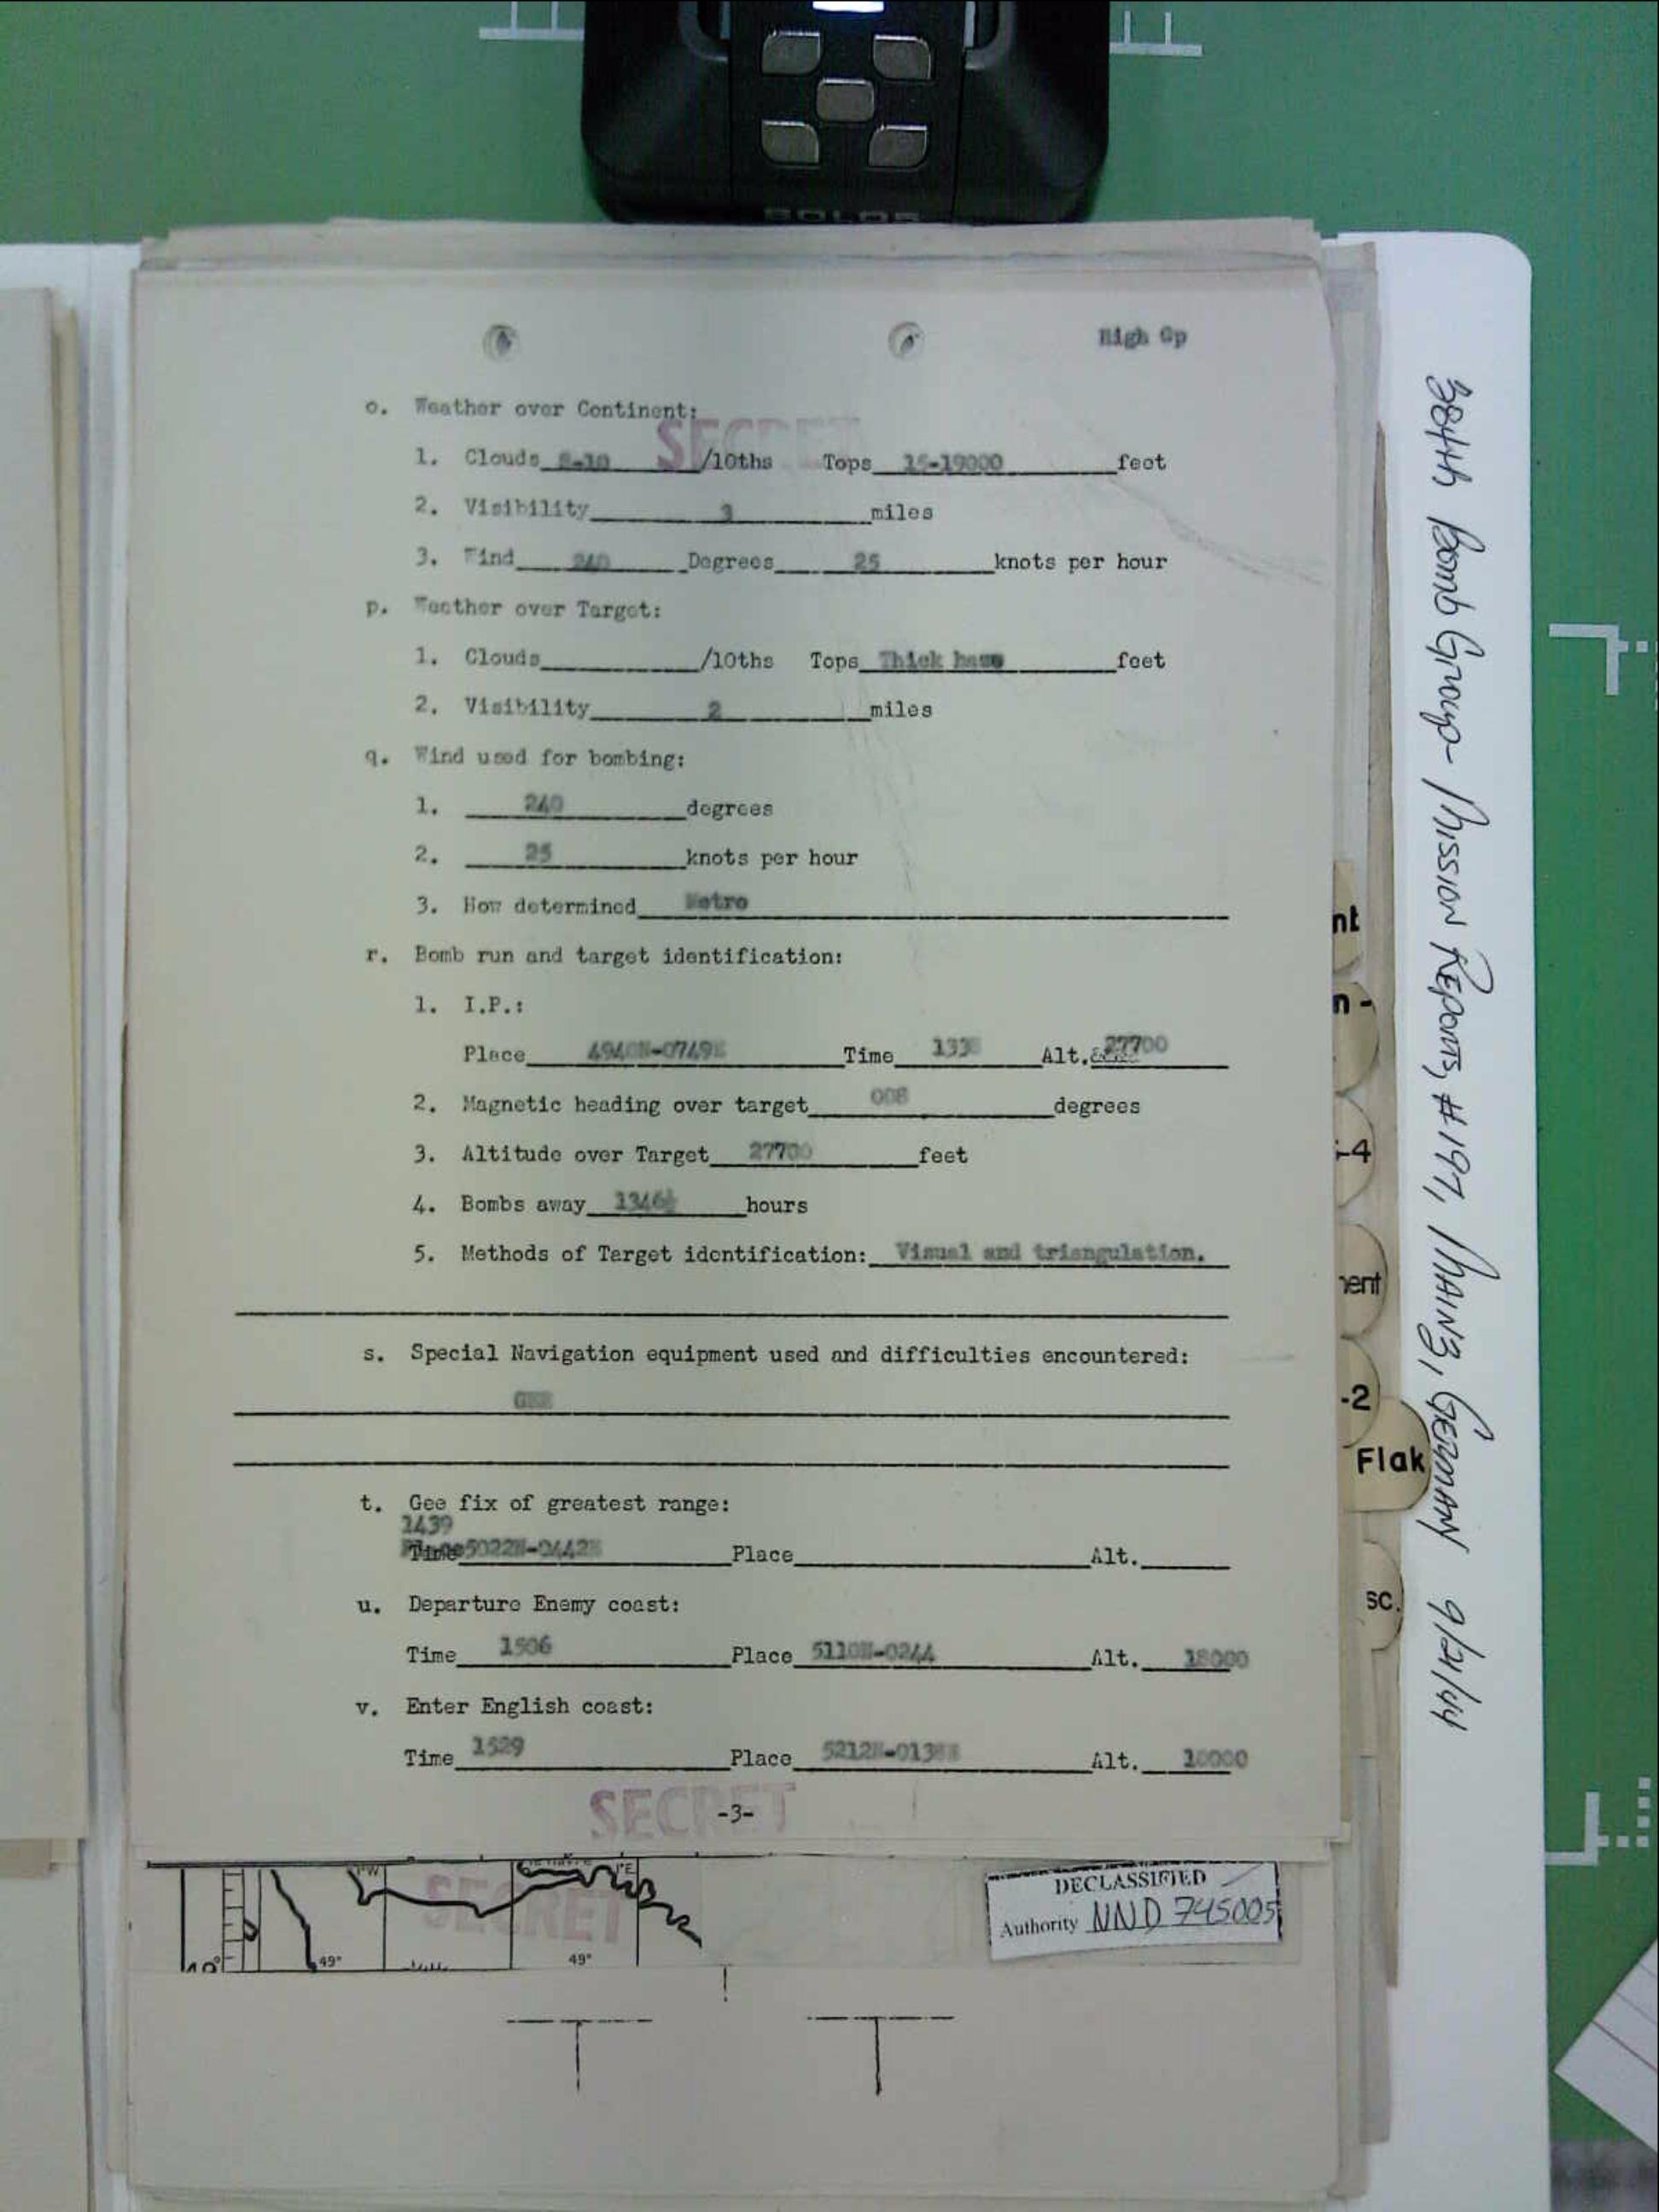 High Gp
o. Weather over Continent:
SECRET
1. Clouds 8-10 /10ths Tops 15-19000 feet
2. Visibility 3 miles
3. Wind 240 Degrees 25 knots per hour
p. Weather over Target:
1. Clouds /10ths Tops Thick haze feet
2. Visibility 2 miles
q. Wind used for bombing:
1. 240 degrees
2. 25 knots per hour
3. How determined Metro
r. Bomb run and target identification:
1. I.P.:
Place 4940N-0749E Time 133 Alt. 27700
2. Magnetic heading over target 008 degrees
3. Altitude over Target 27700 feet
4. Bombs away 1346½ hours
5. Methods of Target identification: Visual and triangulation.
s. Special Navigation equipment used and difficulties encountered:
GEE
t. Gee fix of greatest range:
1439
Time 5022N-0442E Place Alt.
u. Departure Enemy coast:
Time 1506 Place 5110N-0244 Alt. 18000
v. Enter English coast:
Time 1529 Place 5212N-013 Alt. 10000
SECRET
-3-
SECRET
1°W
1°E
49°
49°
DECLASSIFIED
Authority NND 745005
nt
n-
-4
ent
-2
Flak
sc.
384th Bomb Group- Mission Reports, #197, Mainz, Germany 9/21/44